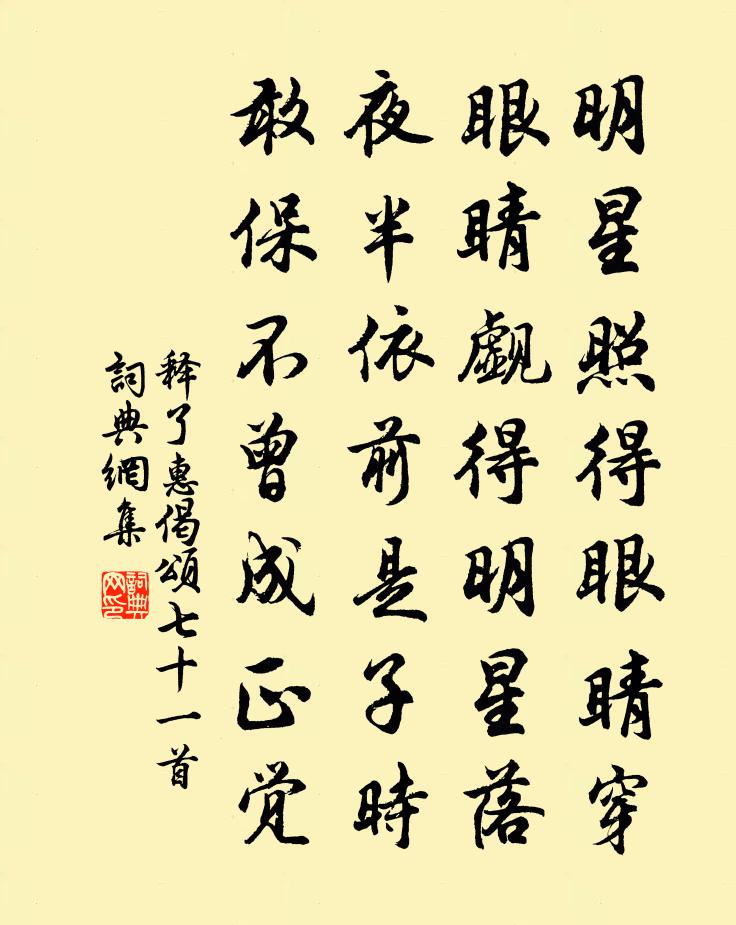 明星照得眼睛穿
眼睛觑得明星落
夜半依前是子時
敢保不曾成正觉
释了惠偈頌七十一首
詞典網集
詞典網印